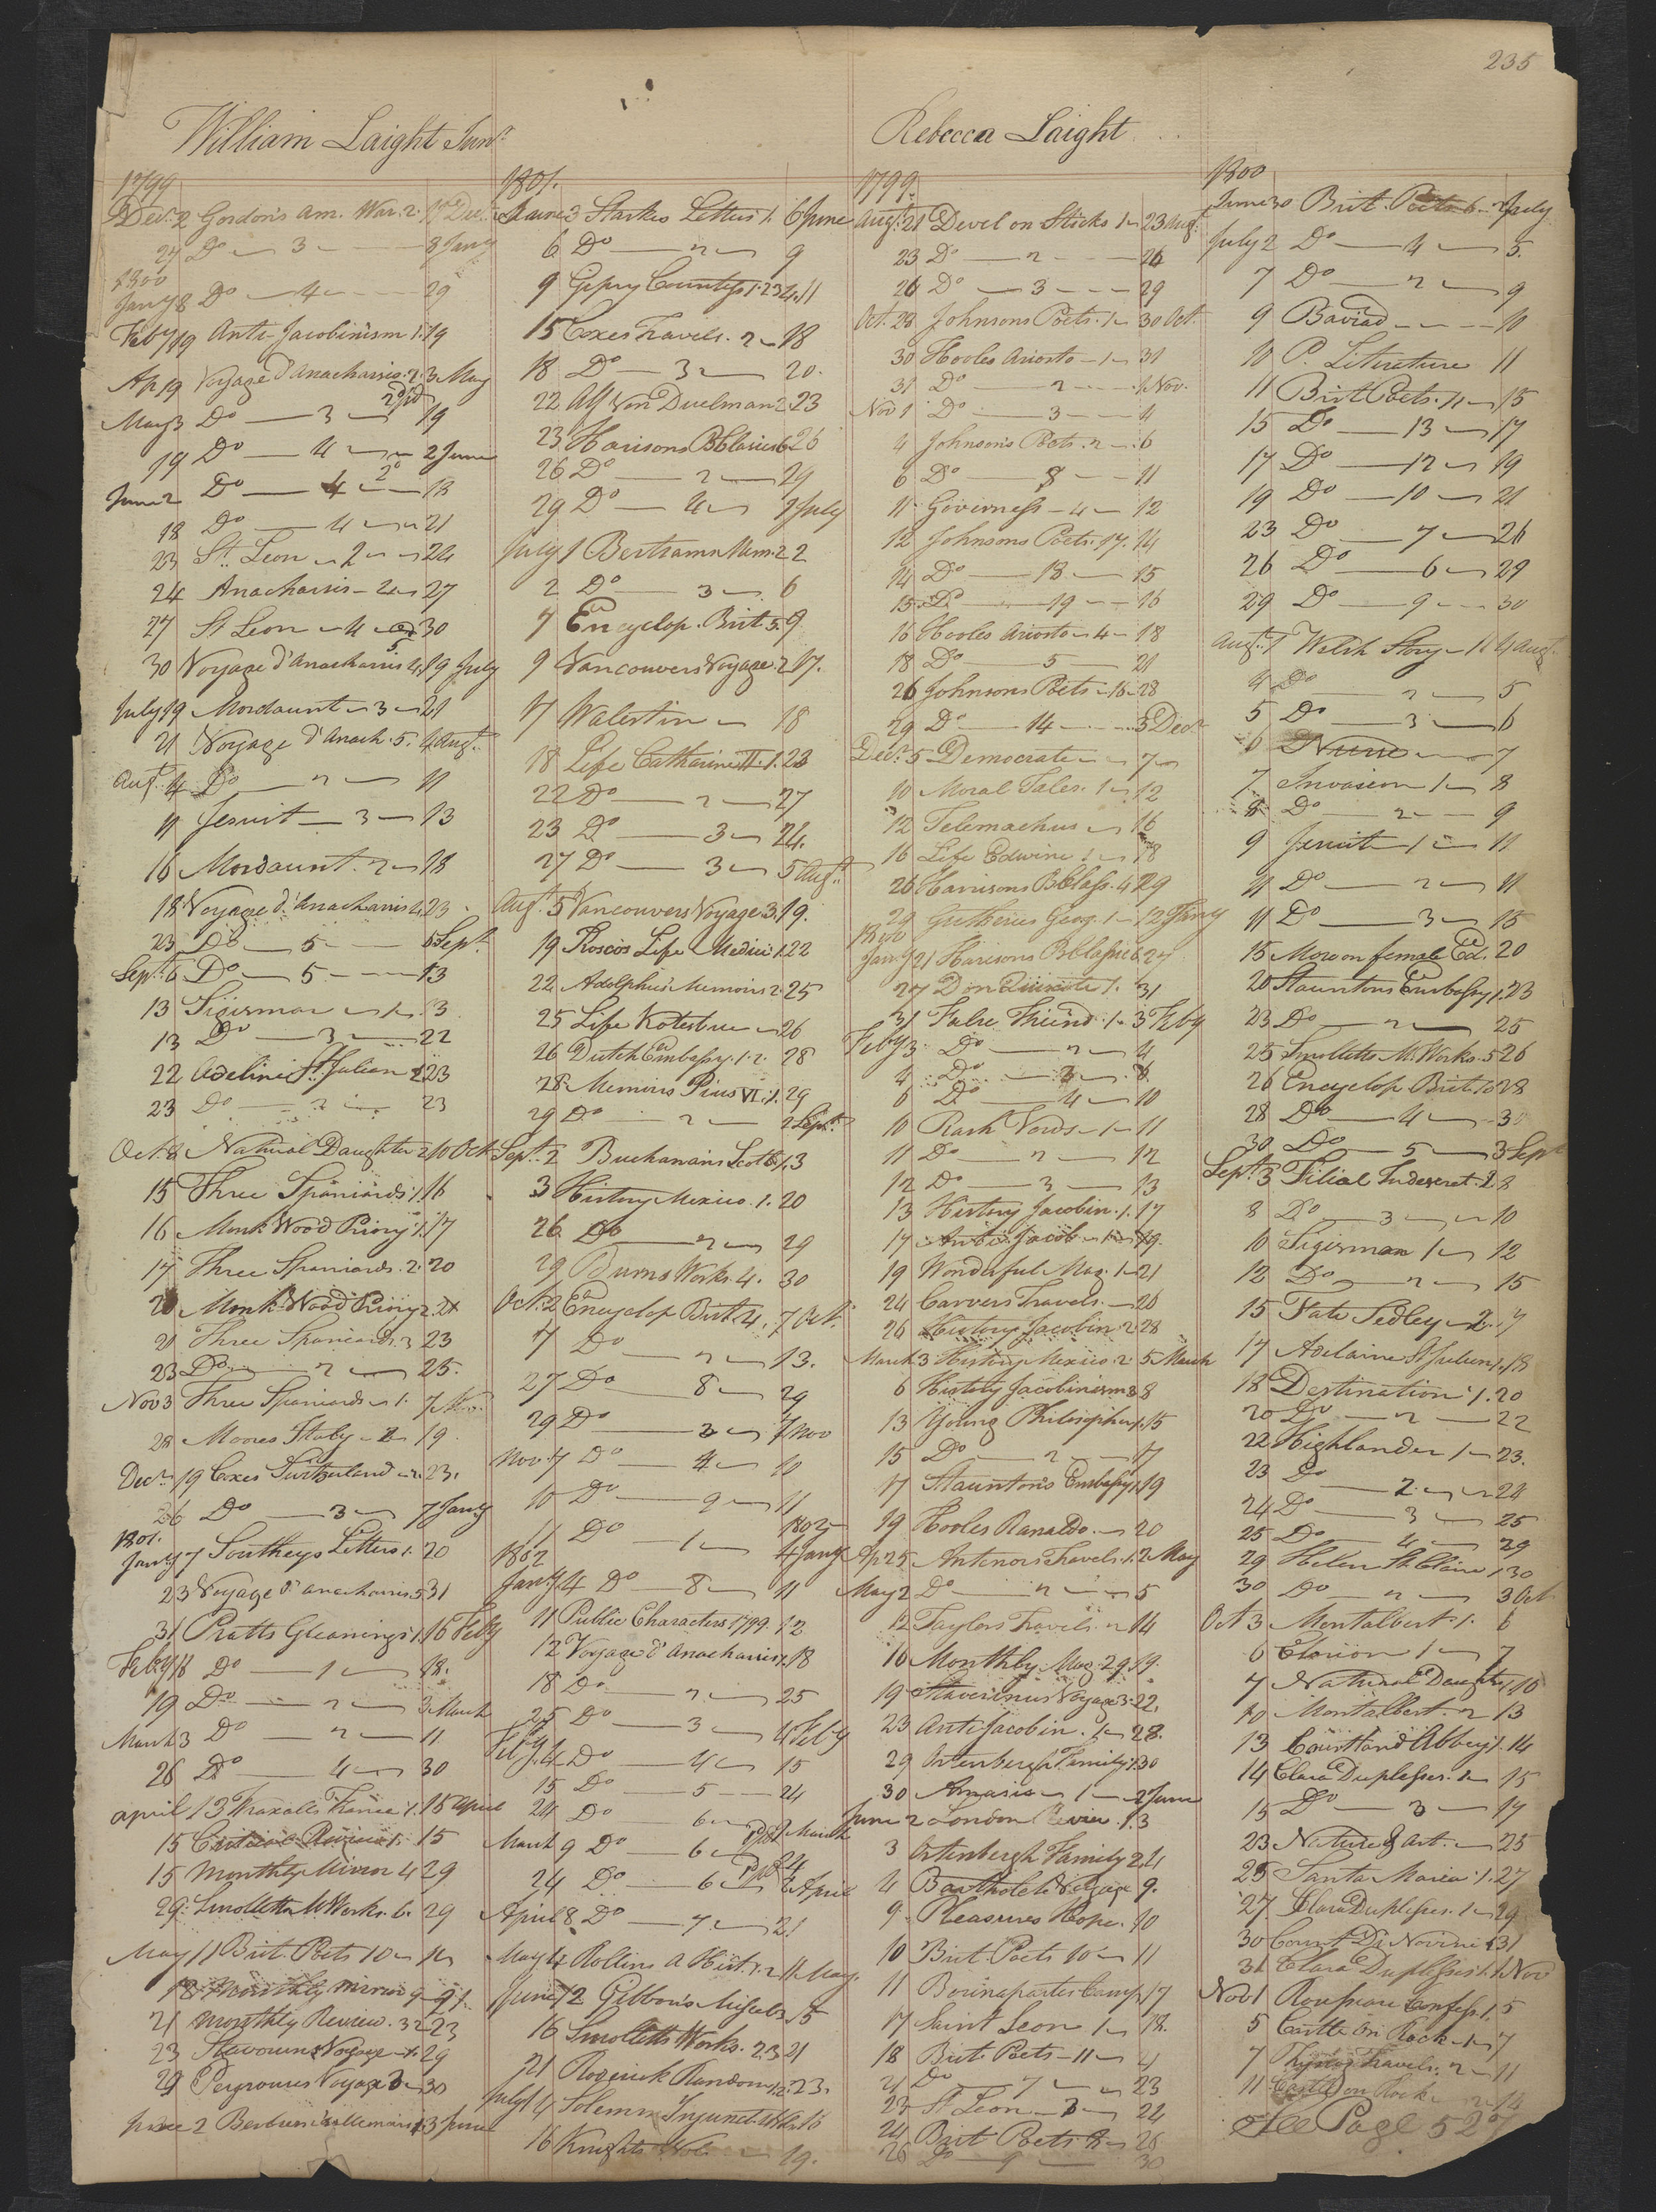 235
William Laight Junr.
1799
Decr. 2 Gordon's Am. War. 2. Decr.
27 Do — 3 — 8 Jany
1800
Jany 8 Do — 4 — 29
Feby 19 Anti-Jacobinism 1. 19
Ap 19 Voyage d'Anacharsis. 2. 3 May
May 3 Do — 3 — 19
19 Do — 4 — 2 June
June 2 Do — 4 — 18
18 Do — 4 — 21
23 St. Leon — 2 — 24
24 Anacharsis — 27
27 St Leon — 30
30 Voyage d'Anacharsis 4. 19 July
July 19 Mordaunt — 3 — 21
21 Voyage d'Anach. 5. 4 Augt.
Augt. 4 Do — 2 — 11
11 Jesuit — 3 — 13
16 Mordaunt. 2 — 18
18 Voyage d'Anacharsis 4. 23
23 Do — 5 — 6 Sept.
Sept. 6 Do — 5 — 13
13 Sigismar — 1 — 13
13 Do — 3 — 22
22 Adeline St. Julian 23
23 Do — 2 — 23
Oct. 8 Natural Daughter 2. 10 Oct.
15 Three Spaniards 1. 16
16 Monk Wood Priory 1. 17
17 Three Spaniards. 2. 20
20 Monk Wood Priory 2. 21
21 Three Spaniards. 3 23
23 Do — 2 — 25.
Nov 3 Three Spaniards — 1. 7 Nov.
28 Moores Italy — 2 — 19
Decr. 19 Coxes Switzerland — 2. 23.
26 Do — 3 — 7 Jany
1801.
Jany 7 Southeys Letters 1. 20
23 Voyage d'Anacharsis 5. 31
31 Pratts Gleanings 1. 16 Feby
Feby 16 Do — 1 — 18.
19 Do — 2 — 3 March
March 3 Do — 2 — 11
26 Do — 4 — 30
April 13 Wraxalls France 1. 15 April
15 Critical Review 1. 15
15 Monthly Mirror 4 29
29 Smolletts M. Works. 6. 29
May 11 Brit. Poets 10 —
18 Monthly Mirror 9 — 21.
21 Monthly Review. 32 23
23 Stavorinus Voyage — 1. 29
29 Peyrouses Voyage 3 — 30
June 2 3 June
1801.
June 3 Starkes Letters 1. 6 June
6 Do — 2 — 9
9 Gipsy Countess 1. 2 3 4. 11
15 Coxes Travels. 2 — 18
18 Do — 3 — 20.
22 Alf Von Duelman 2. 23
23 Harisons B Classics 6 26
26 Do — 2 — 29
29 Do — 4 — 1 July
July 1 Bertrams Mem. 2 2
2 Do — 3 — 6
7 Encyclop. Brit. 5. 9
9 Vancouvers Voyage. 2 17.
17 Walestin — 18
18 Life Catharine II. 1. 23
22 Do — 2 — 27
23 Do — 3 — 24.
27 Do — 3 — 5 Augt.
Augt. 5 Vancouvers Voyage 3. 19.
19 Roscos Life Medici 1. 22
22 Adolphus Memoirs 2. 25
25 Life Kotzebue — 26
26 Dutch Embassy. 1. 2. 28
28 Memoirs Pius VI. 1. 29
29 Do — 2 — 2 Sept.
Sept. 2 Buchanans Scotld. 1. 3
3 History Mexico. 1. 20
26 Do — 2 — 29
29 Burns Works. 4. 30
Oct. 2 Encyclop Brit 4. 7 Oct.
7 Do — 2 — 13.
27 Do — 8 — 29
29 Do — 3 — 7 Nov
Nov. 7 Do — 4 — 10
10 Do — 9 — 11
11 Do — 1 — 1802 4 Jany
1802
Jany 4 Do — 8 — 11
11 Public Characters 1799. 12
12 Voyage d'Anacharsis 1. 18
18 Do — 2 — 25
25 Do — 3 — 4 Feby
Feby 4 Do — 4 — 15
15 Do — 5 — 24
24 Do — 6 — March
March 9 Do — 6 — 24
24 Do — 6 — 8 April
April 8 Do — 7 — 21
May 4 Rollins A Hist. 1. 2 11 May
June 12 Gibbons Miscel 2 15
16 Smolletts Works. 2. 3 21
21 Roderick Random 1. 2. 23.
July 14 Solemn Injunct. 16
16 Knights — 19.
Rebecca Laight
1799.
Augt. 21 Devil on Sticks 1 — 23 Augt.
23 Do — 2 — 26
26 Do — 3 — 29
Oct. 28 Johnsons Poets. 1 — 30 Oct.
30 Hooles Ariosto — 1 — 31
31 Do — 2 — 1 Nov.
Nov 1 Do — 3 — 4
4 Johnsons Poets. 2 — 6
6 Do — 8 — 11
11 Governess — 4 — 12
12 Johnsons Poets. 17. 14
14 Do — 18 — 15
15 Do — 19 — 16
16 Hooles Ariosto — 4 — 18
18 Do — 5 — 21
26 Johnsons Poets — 15 — 28
29 Do — 14 — 5 Decr.
Decr. 5 Democrat — 7
10 Moral Tales. 1 — 12
12 Telemachus — 16
16 Life Edwin 1 — 18
26 Harrisons B Class. 4 29
29 Guthries Geog. 1 — 12 Jany
1800
Jany 21 Harisons B Classics 6 27
27 Don Quixote 1. 31
31 False Friend. 1 — 3 Feby
Feby 3 Do — 2 — 4
4 Do — 3 — 6
6 Do — 4 — 10
10 Rash Vows — 1 — 11
11 Do — 2 — 12
12 Do — 3 — 13
13 History Jacobin. 1. 17
17 Anti Jacob — 1 — 19.
19 Wonderful Mag. 1 — 21
24 Carvers Travels. — 26
26 History Jacobin 2. 28
March 3 History Mexico. 2. 5 March
6 History Jacobinism 3 8
13 Young Philosopher 1. 15
15 Do — 2 — 17
17 Stauntons Embassy 1. 19
19 Hooles Ranaldo. — 20
Ap 25 Antenors Travels. 1. 2 May
May 2 Do — 2 — 5
12 Taylors Travels. 2 14
16 Monthly Mag. 2 9 19.
19 Stavorinus Voyage 3. 22.
23 Anti Jacobin. 1 — 28.
29 Ortenbergh Family 1. 30
30 Amasia — 1 — 2 June
June 2 London Review. 1. 3
3 Ortenbergh Family 2. 4
4 9.
9 Pleasures Hope. 10
10 Brit. Poets 10 — 11
11 Bounapartes Camp. 17
17 Saint Leon 1 — 18.
18 Brit. Poets — 11 — 21
21 Do — 7 — 23
23 St Leon — 24
24 Brit Poets 8 — 26
26 Do — 9 — 30
1800
June 30 Brit. Poets 6 — 2 July
July 2 Do — 4 — 5.
7 Do — 2 — 9
9 Baviad — 10
10 P. Literature 11
11 Brit Poets. 11 — 15
15 Do — 13 — 17
17 Do — 12 — 19
19 Do — 10 — 21
23 Do — 7 — 26
26 Do — 6 — 29
29 Do — 9 — 30
Augt. 1 Welsh Story — 1. 4 Augt.
4 Do — 2 — 5
5 Do — 3 — 6
6 — 7
7 Invasion 1 — 8
8 Do — 2 — 9
9 Jesuit — 1 — 11
11 Do — 2 — 11
11 Do — 3 — 15
15 More on female Ed. 20
20 Stauntons Embassy 1. 23
23 Do — 2 — 25
25 Smolletts M. Works. 5 26
26 Encyclop Brit. 10 28
28 Do — 4 — 30
30 Do — 5 — 3 Sept
Sept. 3 Filial Indiscret. 1. 8
8 Do — 3 — 10
10 Sigismar 1 — 12
12 Do — 2 — 15
15 Fate Sedley — 2. 17
17 Adelaine St Julien 1. 18
18 Destination. 1. 20
20 Do — 2 — 22
22 Highlander 1 — 23.
23 Do — 2 — 24
24 Do — 3 — 25
25 Do — 4 — 29
29 Helen St. Claire 1 30
30 Do — 2 — 3 Oct
Oct 3 Montalbert. 1. 6
6 Clarion 1 — 7
7 Natural Daughter 1. 10
10 Montalbert. 2 13
13 Courtland Abbey 1. 14
14 Clara Duplesses. 1 — 15
15 Do — 3 — 17
23 Nature & Art. — 25
25 Santa Maria 1. 27
27 Clara Duplesses. 1 — 29
30 Count Di Novini 1 31
31 Clara Duplesses 1. 1 Nov
Nov 1 Rousseau Confess. 1. 5
5 Castle on Rock — 1 — 7
7 Travels. 2 — 11
11 Castle on Rock — 2 — 14
See Page 527